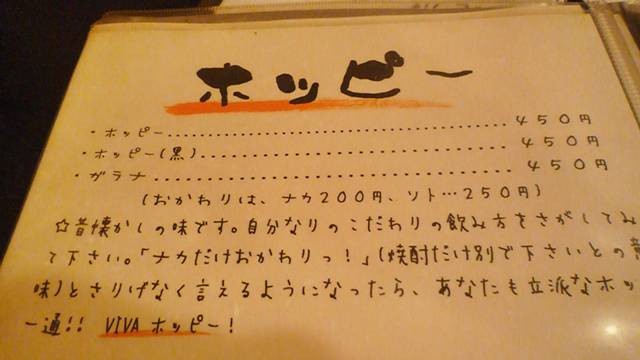 ホッピー
・ホッピー..............................450円
・ホッピー(黒)..............................450円
・ガラナ..............................450円
(おかわりは、ナカ200円、ソト…250円)
☆昔懐かしの味です。自分なりのこだわりの飲み方をさがしてみ
て下さい。「ナカだけおかわりっ!」(焼酎だけ別で下さいとの意
味)とさりげなく言えるようになったら、あなたも立派なホッ
ー通!! VIVA ホッピー!